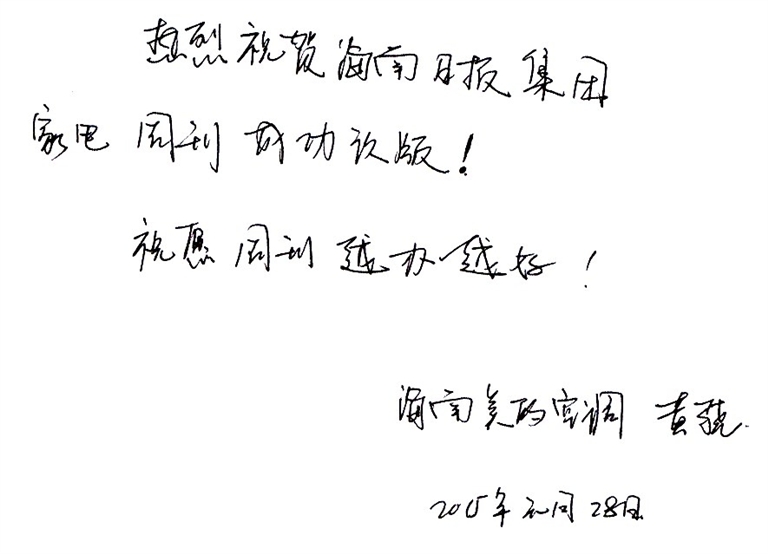 热烈祝贺海南日报集团
家电周刊成功改版！
祝愿周刊越办越好！
海南美的空调 黄
2015年元月28日